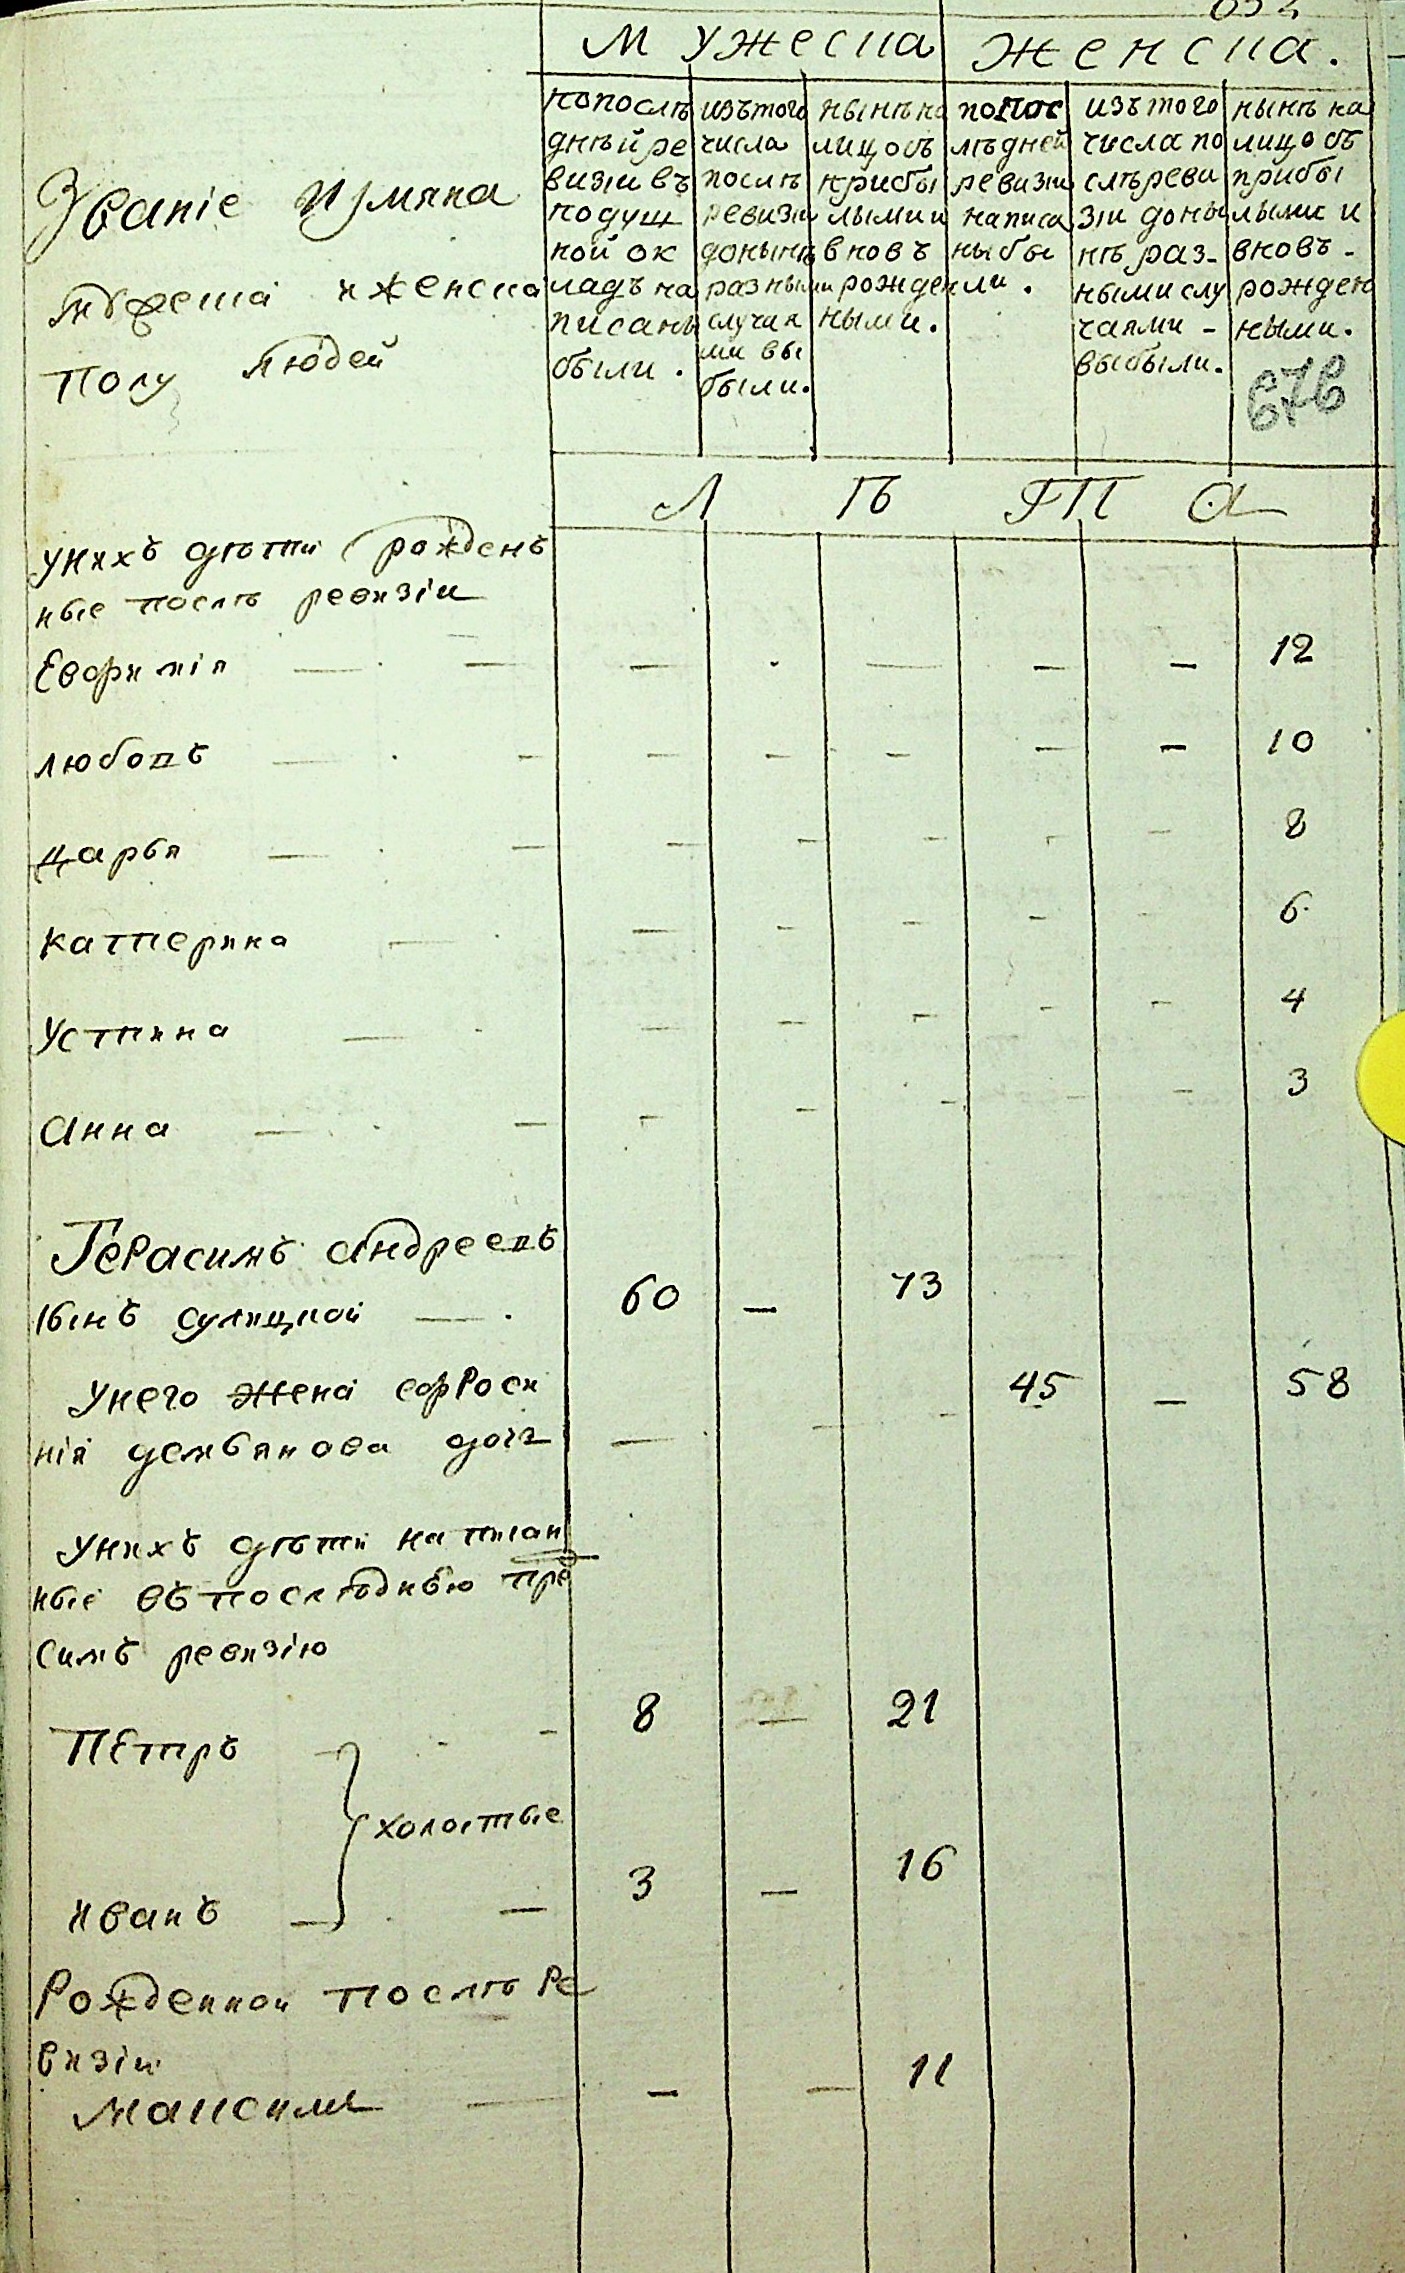 Мужеска
женска.
Званіе Имяна
мужеска и женска
полу людей
попослѣ
дней ре
визіи въ
подуш
ной ок
ладъ на
писаны
были.
изътого
числа
послѣ
ревизіи
донынѣ
разными
случая
ми вы
были.
нынѣ на
лицо съ
прибы
лыми и
вновъ
рожден
ными.
попос
лѣдней
ревизіи
написа
ны бы
ли.
изътого
числа по
слѣ реви
зіи доны
нѣ раз-
ными слу
чаями -
выбыли.
нынѣ на
лицо съ
прибы
лыми и
вновъ -
рожден
ными.
676
Л ѣ т а
унихъ дѣти рожденъ
ные послѣ ревизіи
Евфимія 12
любовъ 10
дарья 8
катерина 6
устина 4
анна 3
Герасимъ андреевъ
сынъ сулицкой 60 — 73
унего жена ефроси
нія демьянова доч 45 — 58
унихъ дѣти написан
ные въ последнюю пре
симъ ревизію
Петръ 8 — 21
холостые
иванъ 3 — 16
Рожденной послѣ Ре
визіи
максимъ — — 11